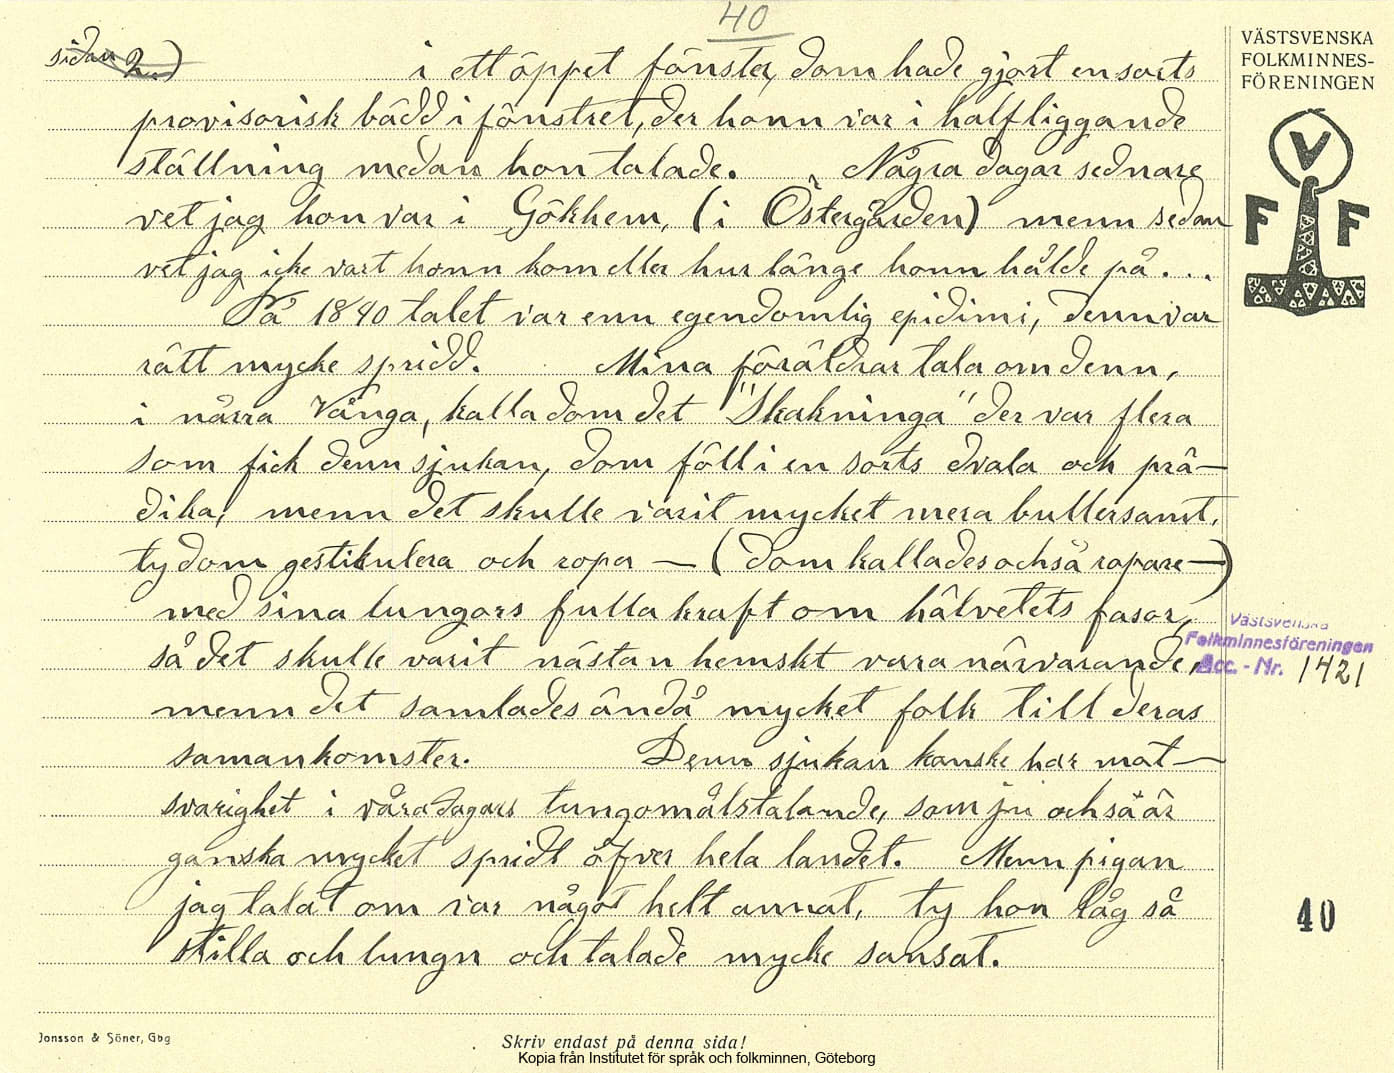 40
sidan 2.)
i ett öppet fönster, dom hade gjort en sorts
provisorisk bädd i fönstret, der honn var i halfliggande
ställning medan hon talade. Några dagar sednare
vet jag hon var i Gökhem, (i Östergården) menn sedan
vet jag icke vart honn kom eller hur länge honn hålde på . . .
På 1840 talet var enn egendomlig epidimi, denn var
rätt mycke spridd. Mina föräldrar tala om denn,
i närra Vånga, kalla dom det "Skakninga" der var flera
som fick denn sjukan, dom föll i en sorts dvala och prä-
dika, menn det skulle varit mycket mera bullersamt,
ty dom gestikulera och ropa — (dom kallades också ropare—)
med sina lungors fulla kraft om hälvetets fasor,
så det skulle varit nästan hemskt vara närvarande,
menn det samlades ändå mycket folk till deras
samankomster. Denn sjukan kanske har mot-
svarighet i våra dagars tungomålstalande, som ju också är
ganska mycket spridt öfver hela landet. Menn pigan
jag talat om var något helt annat, ty hon låg så
stilla och lungn och talade mycke sansat.
VÄSTSVENSKA
FOLKMINNES-
FÖRENINGEN
V
F F
Västsvenska
Folkminnesföreningen
Acc. - Nr. 1421
40
Jonsson & Söner, Gbg
Skriv endast på denna sida!
Kopia från Institutet för språk och folkminnen, Göteborg